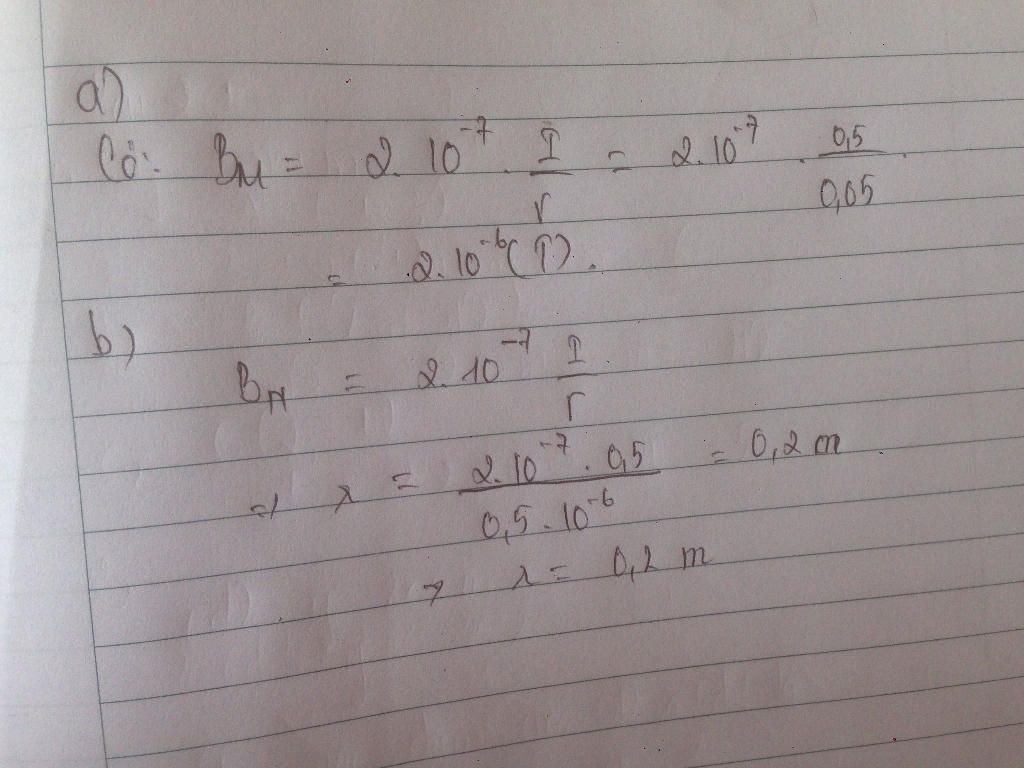 a)
Có: B_M = 2.10^-7 . I/r = 2.10^-7 . 0,5/0,05.
= .2.10^-6 (T).
b)
B_N = 2.10^-7 I/r
=> r = 2.10^-7 . 0,5 / 0,5.10^-6 = 0,2 m
→ r = 0,2 m